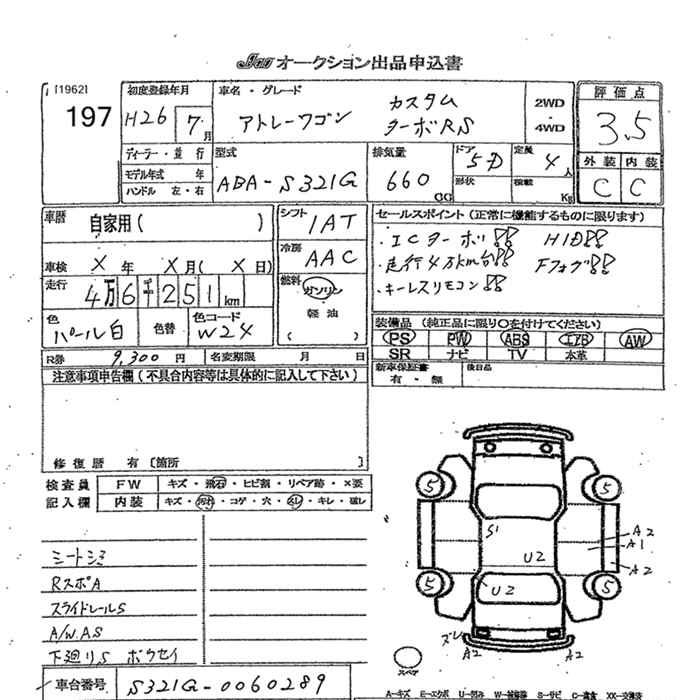 JAA オークション出品申込書
[1962]
197
初度登録年月
H26 7月
車名・グレード
アトレーワゴン
カスタム
ターボRS
2WD
・
4WD
評価点
3.5
外装 内装
C C
ディーラー・並行
モデル年式 年
ハンドル 左・右
型式
ABA-S321G
排気量
660
CC
ドア
5D
形状
定員
4人
積載
Kg
車歴
自家用( )
シフト
IAT
冷房
AAC
セールスポイント(正常に機能するものに限ります)
・ICターボ!! HID!!
・走行4万km台!! Fフォグ!!
・キーレスリモコン!!
車検 X年 X月( X日)
走行
4万6千251km
燃料
ガソリン
・
軽油
( )
色
パール白
色替
色コード
W24
装備品(純正品に限り○を付けてください)
PS PW ABS エアB AW
SR ナビ TV 本革
R券 9,300円
名変期限 月 日
新車保証書
有・無
後日品
注意事項申告欄(不具合内容等は具体的に記入して下さい)
修復歴 有〔箇所 〕
検査員
記入欄
FW キズ・飛石・ヒビ割・リペア跡・×要
内装 キズ・汚れ・コゲ・穴・スレ・キレ・破レ
シートシミ
RスポA
スライドレールS
A/W.AS
下廻りS ボウセイ
車台番号 S321G-0060289
5 5
S1
U2
A2
A1
A2
5 5
U2
ズレ
A2 A2
スペア
A-キズ E-エクボ U-凹み W-補修跡 S-サビ C-腐食 XX-交換済